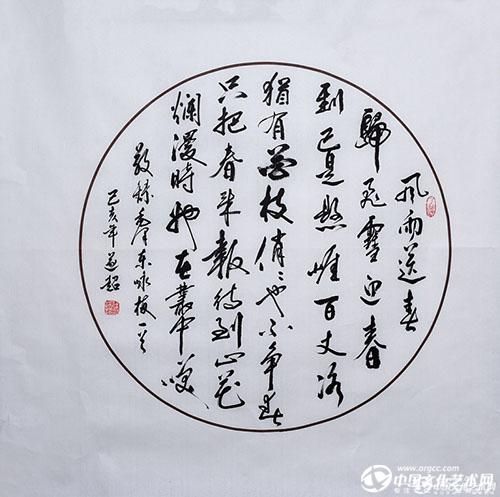 風雨送春
歸飛雪迎春
到已是懸崖百丈冰
猶有花枝俏〻也不争春
只把春来報待到山花
爛漫時她在叢中笑
敬録毛澤东咏梅一首
己亥年
www.orgcc.com
中国文化艺术网